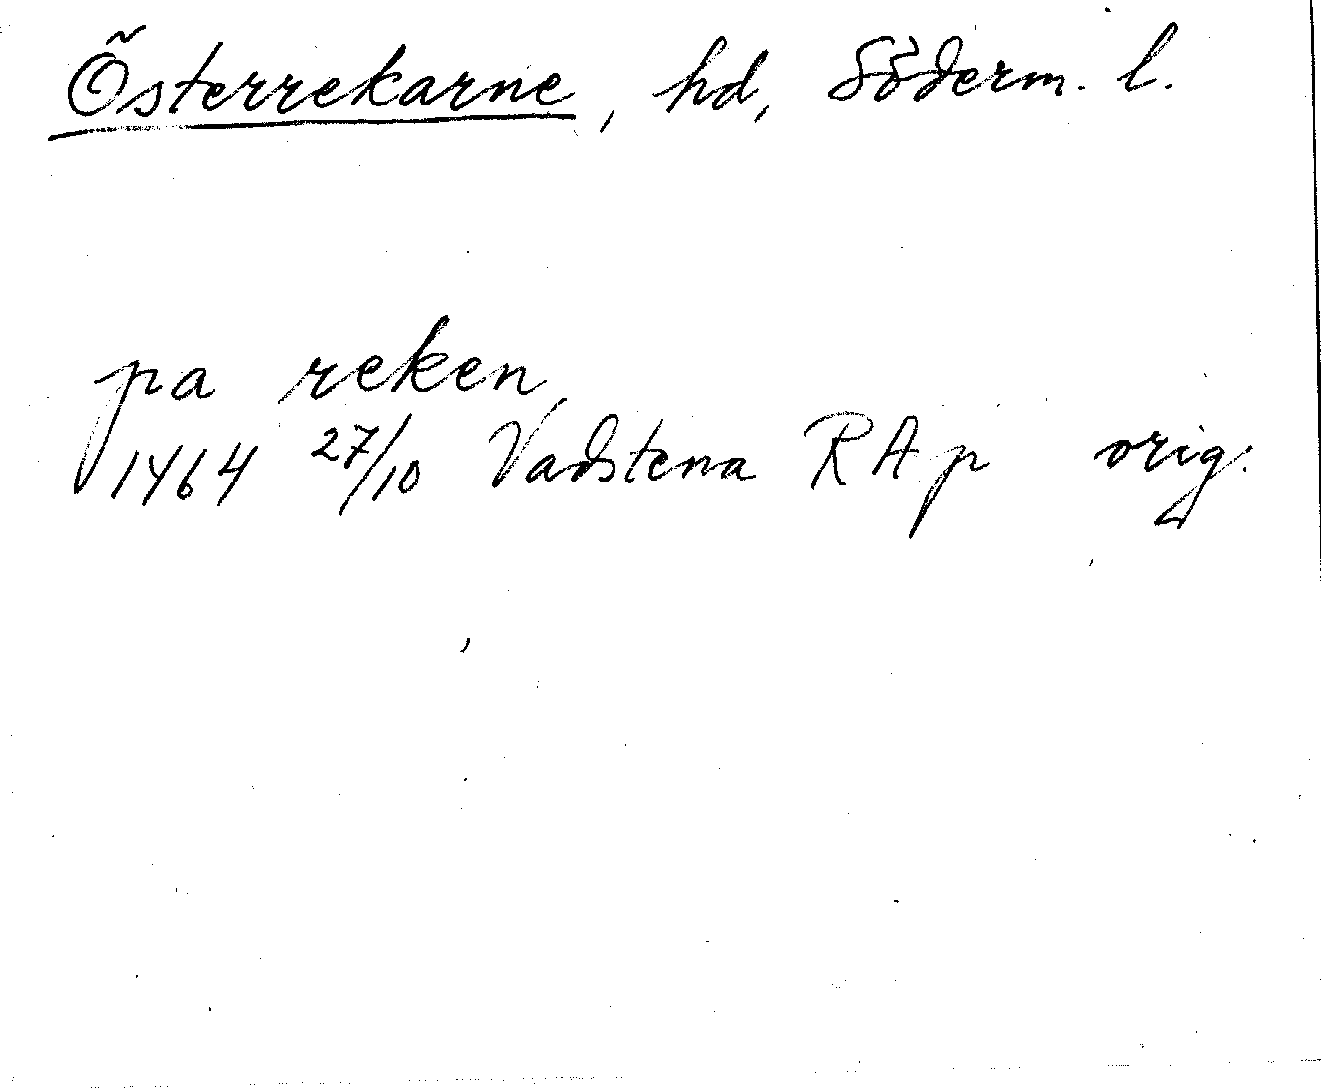 Österrekarne, hd, Söderm. l.
pa reken
1464 27/10 Vadstena RAp orig.